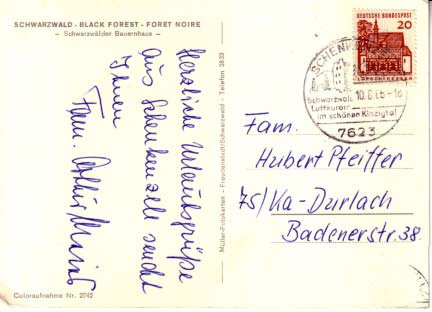 SCHWARZWALD - BLACK FOREST - FORÊT NOIRE
– Schwarzwälder Bauernhaus –
Herzliche Urlaubsgrüße
aus Schenkenzell sendet
Ihnen
Fam.
Müller-Fotokarten - Freudenstadt/Schwarzwald - Telefon
Coloraufnahme Nr. 2742
DEUTSCHE BUNDESPOST
20
10.8.
Schwarzwal
Luftkurort
im schönen Kinzigtal
7623
Fam.
Hubert Pfeiffer
75/Ka-Durlach
Badenerstr. 38.